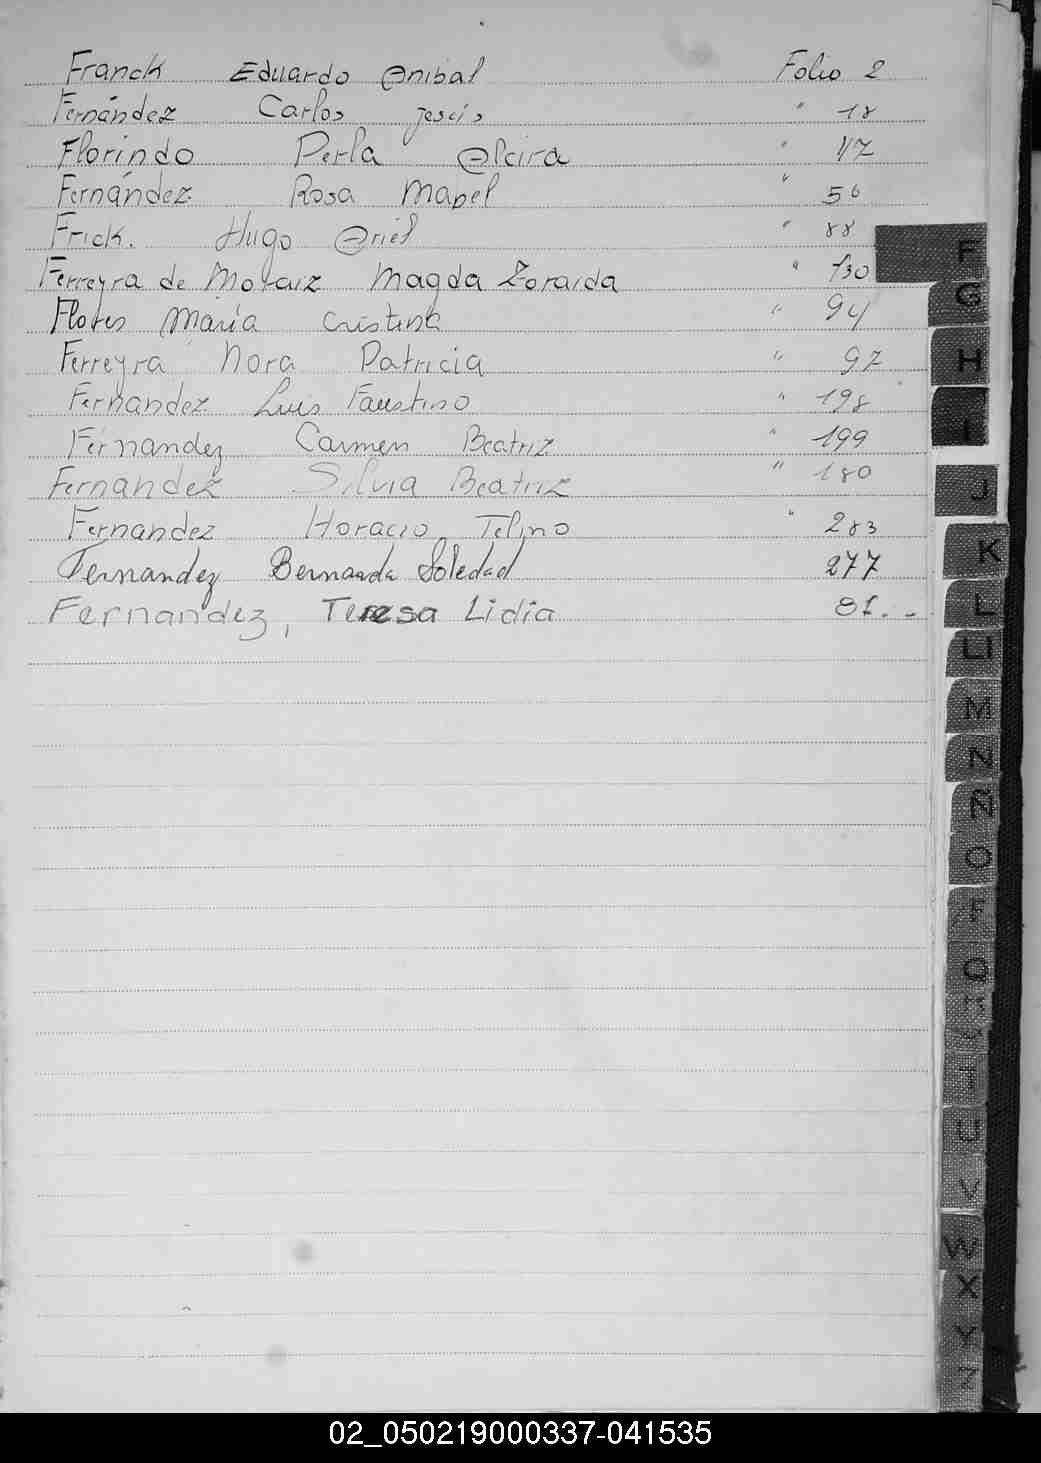 Franck Eduardo Anibal Folio 2
Fernández Carlos Jesús " 18
Florindo Perla Alcira " 47
Fernández Rosa Mabel " 56
Frick. Hugo Ariel " 88
Ferreyra de Moraiz Magda Zoraida " 130
Flores María Cristina " 94
Ferreyra Nora Patricia " 97
Fernandez Luis Faustino " 198
Fernandez Carmen Beatriz " 199
Fernandez Silvia Beatriz " 180
Fernandez Horacio Telmo " 283
Fernandez Bernarda Soledad 277
Fernandez, Teresa Lidia 81.-
F
G
H
I
J
K
L
Ll
M
N
Ñ
O
P
Q
T
U
V
W
X
Y
Z
02_050219000337-041535